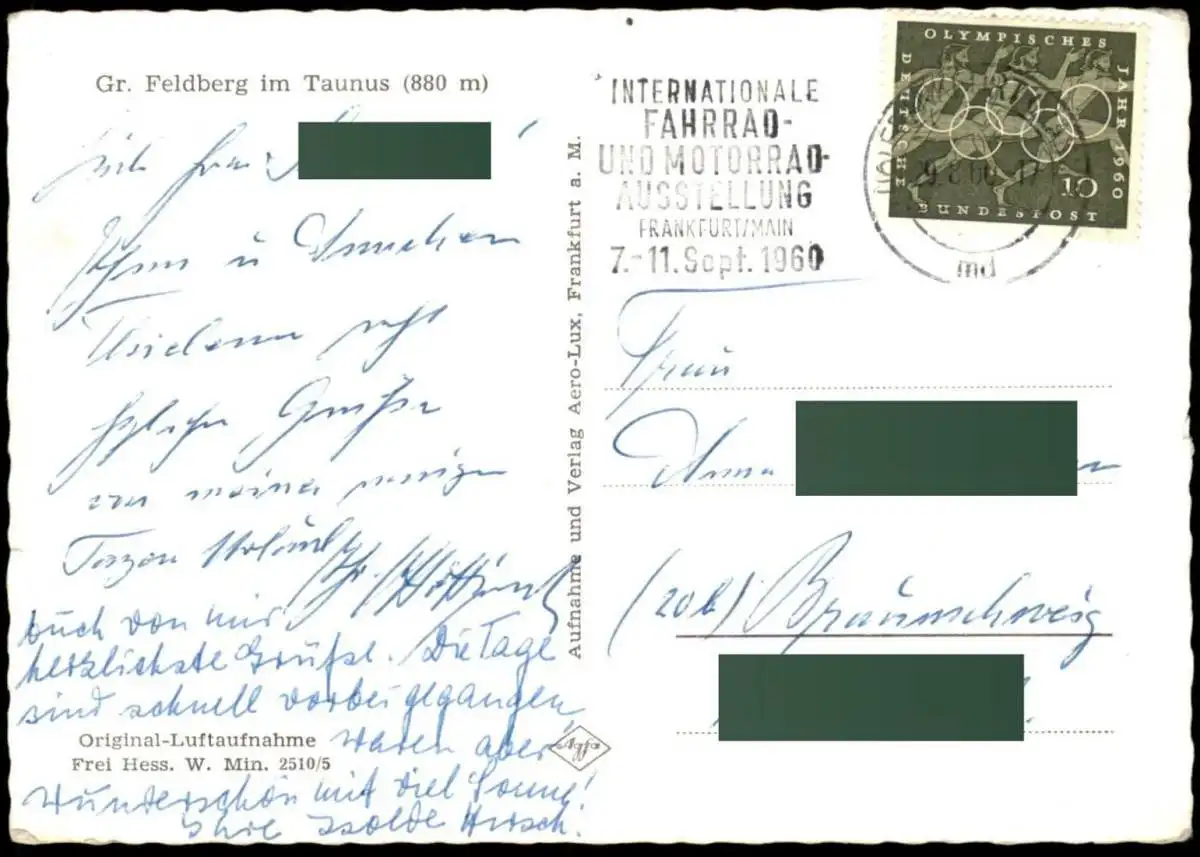 Gr. Feldberg im Taunus (880 m)
Frau
Ihnen u
Grüße
von meiner
auch von mir
herzlichste Grüße. Die Tage
sind schnell vorbeigegangen,
waren aber
wunderschön mit viel Sonne!
Ihre Isolde Hirsch.
Original-Luftaufnahme
Frei Hess. W. Min. 2510/5
Aufnahme und Verlag Aero-Lux, Frankfurt a. M.
Agfa
INTERNATIONALE
FAHRRAD-
UND MOTORRAD-
AUSSTELLUNG
FRANKFURT/MAIN
7.-11. Sept. 1960
md
OLYMPISCHES
JAHR 1960
DEUTSCHE
BUNDESPOST
10
Frau
Anna
(20b) Braunschweig